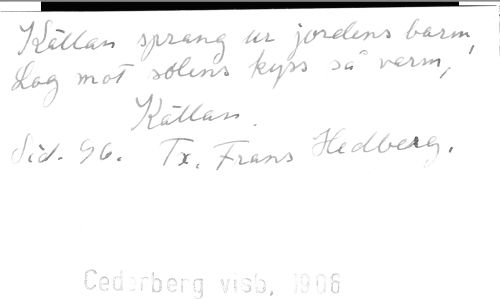 Källan sprang ur jordens barm,
Log mot solens kyss så varm,
Källan.
Sid. 96. Tx. Frans Hedberg.
Cederberg visb. 1906